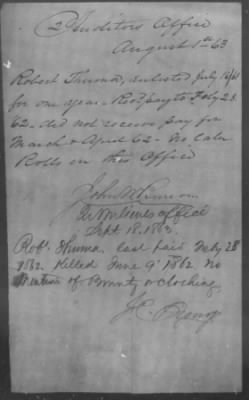 2 Auditors Office
August 1st 63
Robert Thuma, enlisted July 16/61
for one year. Recd pay to Feby 28
62 - did not receive pay for
March & April 62 - No later
Rolls in this Office
John M
Office
Sept. 18. 1863.
Robt Thuma last paid Feby 28
1862. Killed June 9" 1862. No
Mention of Bounty or clothing